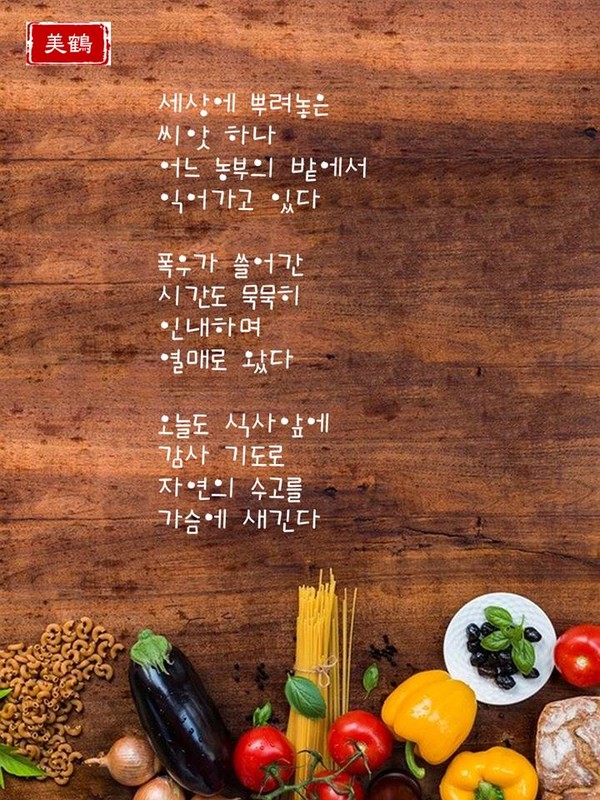 美鶴
세상에 뿌려놓은
씨앗 하나
어느 농부의 밭에서
익어가고 있다
폭우가 쓸어간
시간도 묵묵히
인내하며
열매로 왔다
오늘도 식사앞에
감사 기도로
자연의 수고를
가슴에 새긴다